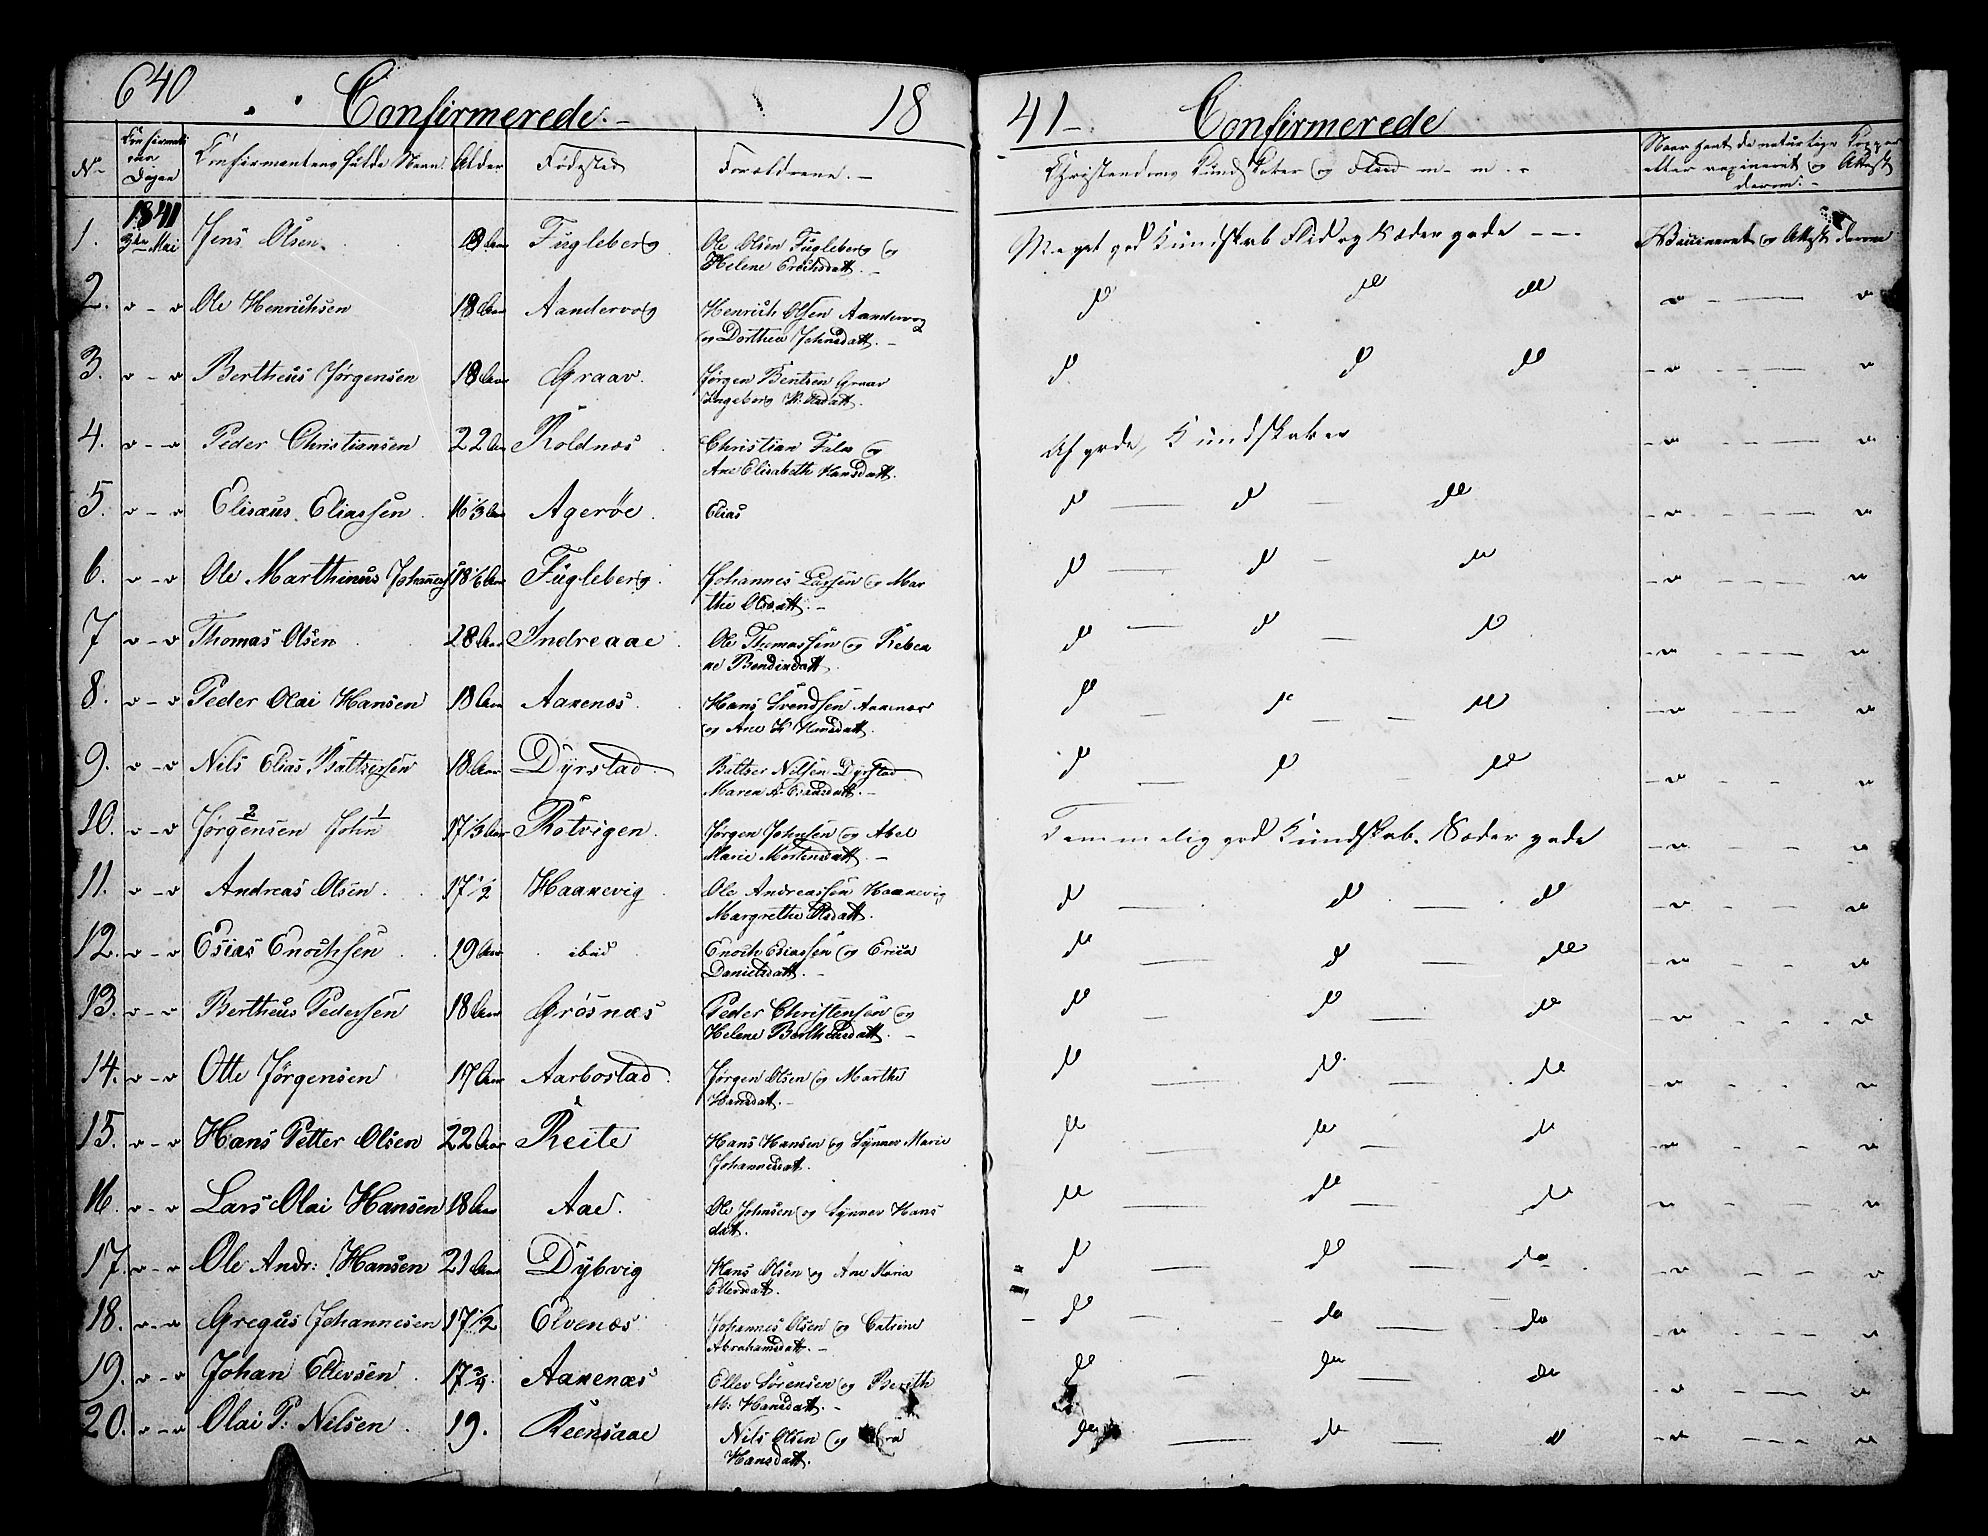 640 Confirmerede. 18
41 Confirmerede
No Dagen Confirmantens fulde Navn. Alder Fødested Forældrene.
Christendoms Kundskaber og Flid
Naar havt de naturlige Kopper
eller vaxineret og Attest
derom.
1. 1841 Mai Jens Olsen 18 Aar Fugleberg Ole Olsen Fugleberg og
Helene Erichsdatt. Meget god Kundskab Flid og Sæder gode Vaccineret og Attest derom
2. do Ole Henrichsen 18 Aar Aandervog Henrich Olsen Aandervog
og Dorthea Johnsdatt. do do do do
3. do Bertheus Jørgensen 18 Aar Graav. Jørgen Bentsen Graav
Ingeborg datt. do do do do
4. do Peder Christiansen 22 Aar Roldnæs Christian Falm og
Ane Elisabeth Hansdatt. Af gode Kundskaber do
5. do Elisæus Eliassen 16 1/3 Aar Agerøe. Elias do do do do
6. do Ole Marthinus Johanness 18 1/6 Aar Fugleberg. Johannes Larsen og Mar
the Olsdatt. do do do do
7 do Thomas Olsen 28 Aar Indreaae Ole Thomassen og Rebek
ne Bendixdatt. do do do do
8. do Peder Olai Hansen 18 Aar Aanenæs Hans Svendsen Aanenæs
og Ane K Hansdatt. do do do do
9. do Nils Elias Baltzersen 18 Aar Dyrstad Baltser Nilsen Dyrstad
Maren A. datt. do do do do
10. do Jørgensen 2 John 1 17 1/3 Aar Rotvigen. Jørgen Johnsen og Abel
Marie Mortensdatt. Temmelig god Kundskab. Sæder gode do
11. do Andreas Olsen. 17 1/2 Haanevig Ole Andreassen Haanevig
Margrethe Olsdatt. do do do do
12. do Esias Enochsen 19 Aar ibid Enoch Esiassen og Erica
Danielsdatt. do do do do
13. do Bertheus Pedersen 18 Aar Grøsnæs Peder Christensen og
Helene Bertheusdatt. do do do do
14. do Otte Jørgensen 17 Aar Aarbostad. Jørgen Olsen og Marthe
Hansdatt. do do do do
15. do Hans Petter Olsen 22 Aar Reite Hans Hansen og Synnev Marie
Johannesdatt. do do do do
16. do Lars Olai Hansen 18 Aar Aae. Ole Johnsen og Synnev Hans
datt. do do do do
17. do Ole Andr: Hansen 21 Aar Dybvig Hans Olsen og Ane Maria
Ellersdatt. do do do do
18. do Gregus Johannesen 17 1/2 Elvenæs Johannes Olsen og Catrine
Abrahamsdatt. do do do do
19. do Johan Ellevsen 17 3/4 Aanenæs Ellev Sørensen og Bereth
M: Hansdatt. do do do do
20. do Olai P: Nilsen 19. Reensaae Nils Olsen og
Hansdatt. do do do do